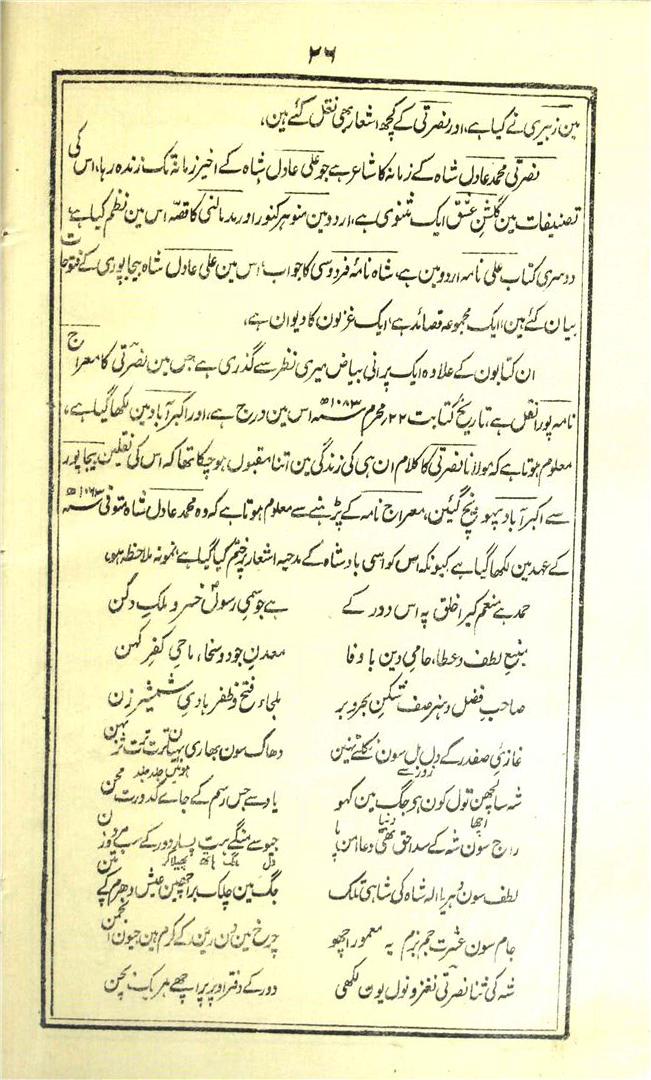 ۲۶
مین زبیری نے کیا ہے، اور نصرتی کے کچھ اشعار بھی نقل کئے ہین،
نصرتی محمد عادل شاہ کے زمانہ کا شاعر ہے جو علی عادل شاہ کے اخیر زمانہ تک زندہ رہا، اس کی
تصنیفات مین گلشن عشق ایک مثنوی ہے، اردو مین منوہر کنور اور مدمالتی کا قصّہ اس مین نظم کیا ہے،
دوسری کتاب علی نامہ اردو مین ہے، شاہ نامۂ فردوسی کا جواب؛ اس مین علی عادل شاہ بیجاپوری کے فتوحات
بیان کئے ہین، ایک مجموعہ قصائد ہے، ایک غزلون کا دیوان ہے،
ان کتابون کے علاوہ ایک پرانی بیاض میری نظر سے گذری ہے جس مین نصرتی کا معراج
نامہ پورا نقل ہے، تاریخ کتابت ۲۲؍ محرم ۱۰۸۳ھ اس مین درج ہے، اور اکبرآباد مین لکھا گیا ہے،
معلوم ہوتا ہے کہ مولانا نصرتی کا کلام ان ہی کی زندگی مین اتنا مقبول ہو چکا تھا کہ اس کی نقلین بیجاپور
سے اکبرآباد پہونچ گئین، معراج نامہ کے پڑہنے سے معلوم ہوتا ہے کہ وہ محمد عادل شاہ متوفی ۱۰۶۳ھ
کے عہد مین لکھا گیا ہے کیونکہ اس کو اسی بادشاہ کے مدحیہ اشعار پر ختم کیا گیا ہے نمونہ ملاحظہ ہو،
حمد بے منعم کیرا خلق پہ اس دور کے ہے جو سمیِ رسولؐ خسرو ملکِ دکن
منبع لطف و عطا، حامیِ دین با وفا معدنِ جود و سخا، ماحیِ کفرِ کہن
صاحبِ فضل و ہنر صف شکنِ بحر و بر ملجاء فتح و ظفر بادیِ شمشیر زن
غازیِ صفدر کے دل بل سون نکلتے نہین دھاک سون بھاری
روز سے ہوئین جلد جلد
شہ سا لچھن تول کون ہر جگ مین کہو یاد سے جس رسم کے جاے کدورت محن
اچھا دنیا
راج سون شہ کے سدا حق تھی دعا من پا جیو سے منگے ہت پسار دور کے سب مرد و زن
دل مانگ ہاتھ پھیلا کر
لطف سون دہر یا الٰہ شاہ کی شاہی تلک جگ مین چلک براچھین عیش دھرم کے
جام سون عشرت جم بزم پہ معمور اچھو چرخ مین دن رین کے کرم ہین جیون انجمن
شہ کی ثنا نصرتی نغز و نول یون لکھی دور کے دفتر اوپر اچھے ہر یک بچن